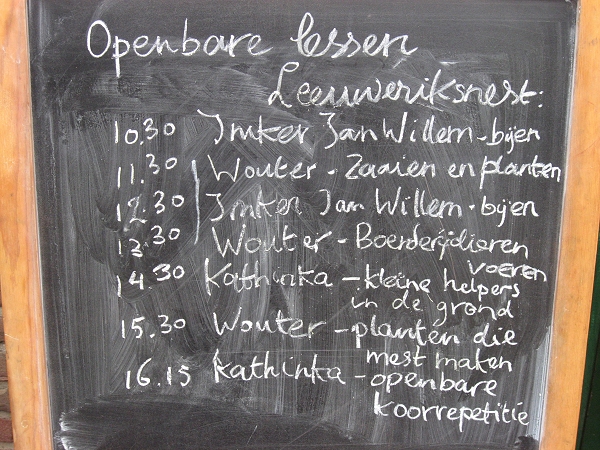 Openbare lessen
Leeuweriksnest:
10.30 Imker Jan Willem - bijen
11.30 Wouter - Zaaien en planten
12.30 Imker Jan Willem - bijen
13.30 Wouter - Boerderijdieren
voeren
14.30 Kathinka - kleine helpers
in de grond
15.30 Wouter - planten die
mest maken
16.15 Kathinka - openbare
koorrepetitie